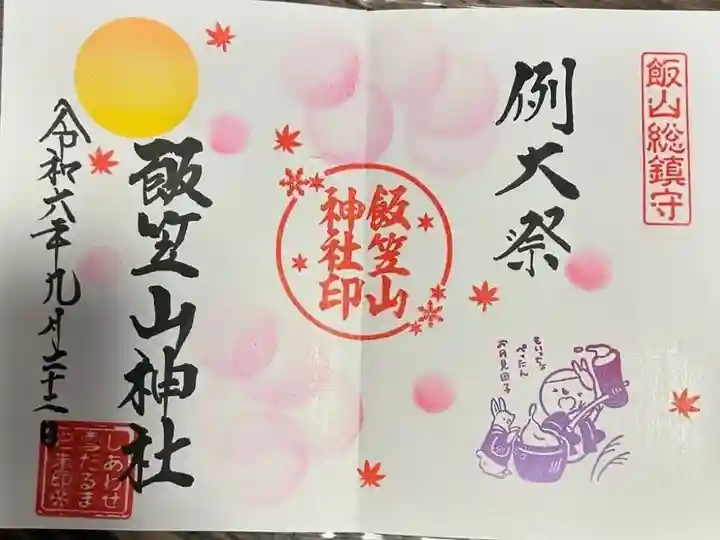 飯山総鎮守
例大祭
飯笠山
神社印
もいっちょ
ぺったん
お月見団子
飯笠山神社
令和六年九月二十二日
しあわせ
雪だるま